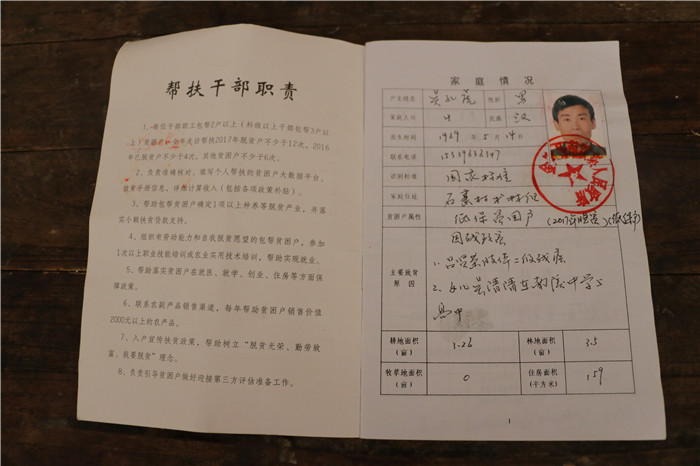 帮扶干部职责
1、每位干部职工包帮2户以上（科级以上干部包帮3户以
上）贫困户，全年走访帮扶2017年脱贫户不少于12次，2016
年已脱贫户不少于4次，其他贫困户不少于6次。
2、负责准确核对、填写个人帮扶的贫困户大数据平台、
贫困手册信息，详细计算收入（包括各项政策补贴）。
3、帮助包帮贫困户确定1项以上种养等脱贫产业，并落
实小额扶贫贷款支持。
4、组织有劳动能力和自我脱贫愿望的包帮贫困户，参加
1次以上职业技能培训或农业实用技术培训，帮助实现就业。
5、帮助落实贫困户在就医、就学、创业、住房等方面保
障政策。
6、联系农副产品销售渠道，每年帮助贫困户销售价值
2000元以上的农产品。
7、入户宣传扶贫政策，帮助树立“脱贫光荣、勤劳致
富、我要脱贫”理念。
8、负责引导贫困户做好迎接第三方评估准备工作。
家庭情况
户主姓名 性别 男
家庭人口 4 民族 汉
出生时间 1969年5月14日
联系电话
识别标准 国家标准
家庭住址
贫困户属性 低保贫困户
主要致贫
原因
因残致贫
高中
耕地面积
（亩） 1.26 林地面积
（亩） 3.5
牧草地面积
（亩） 0 住房面积
（平方米） 159
1